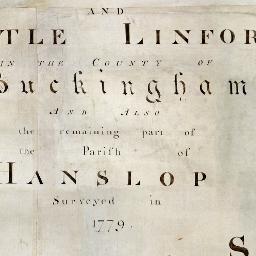 AND
TLE LINFOR
IN THE COUNTY OF
Buckingham
AND ALSO
the remaining part of
the Parish of
HANSLOP
Surveyed in
1779.
S